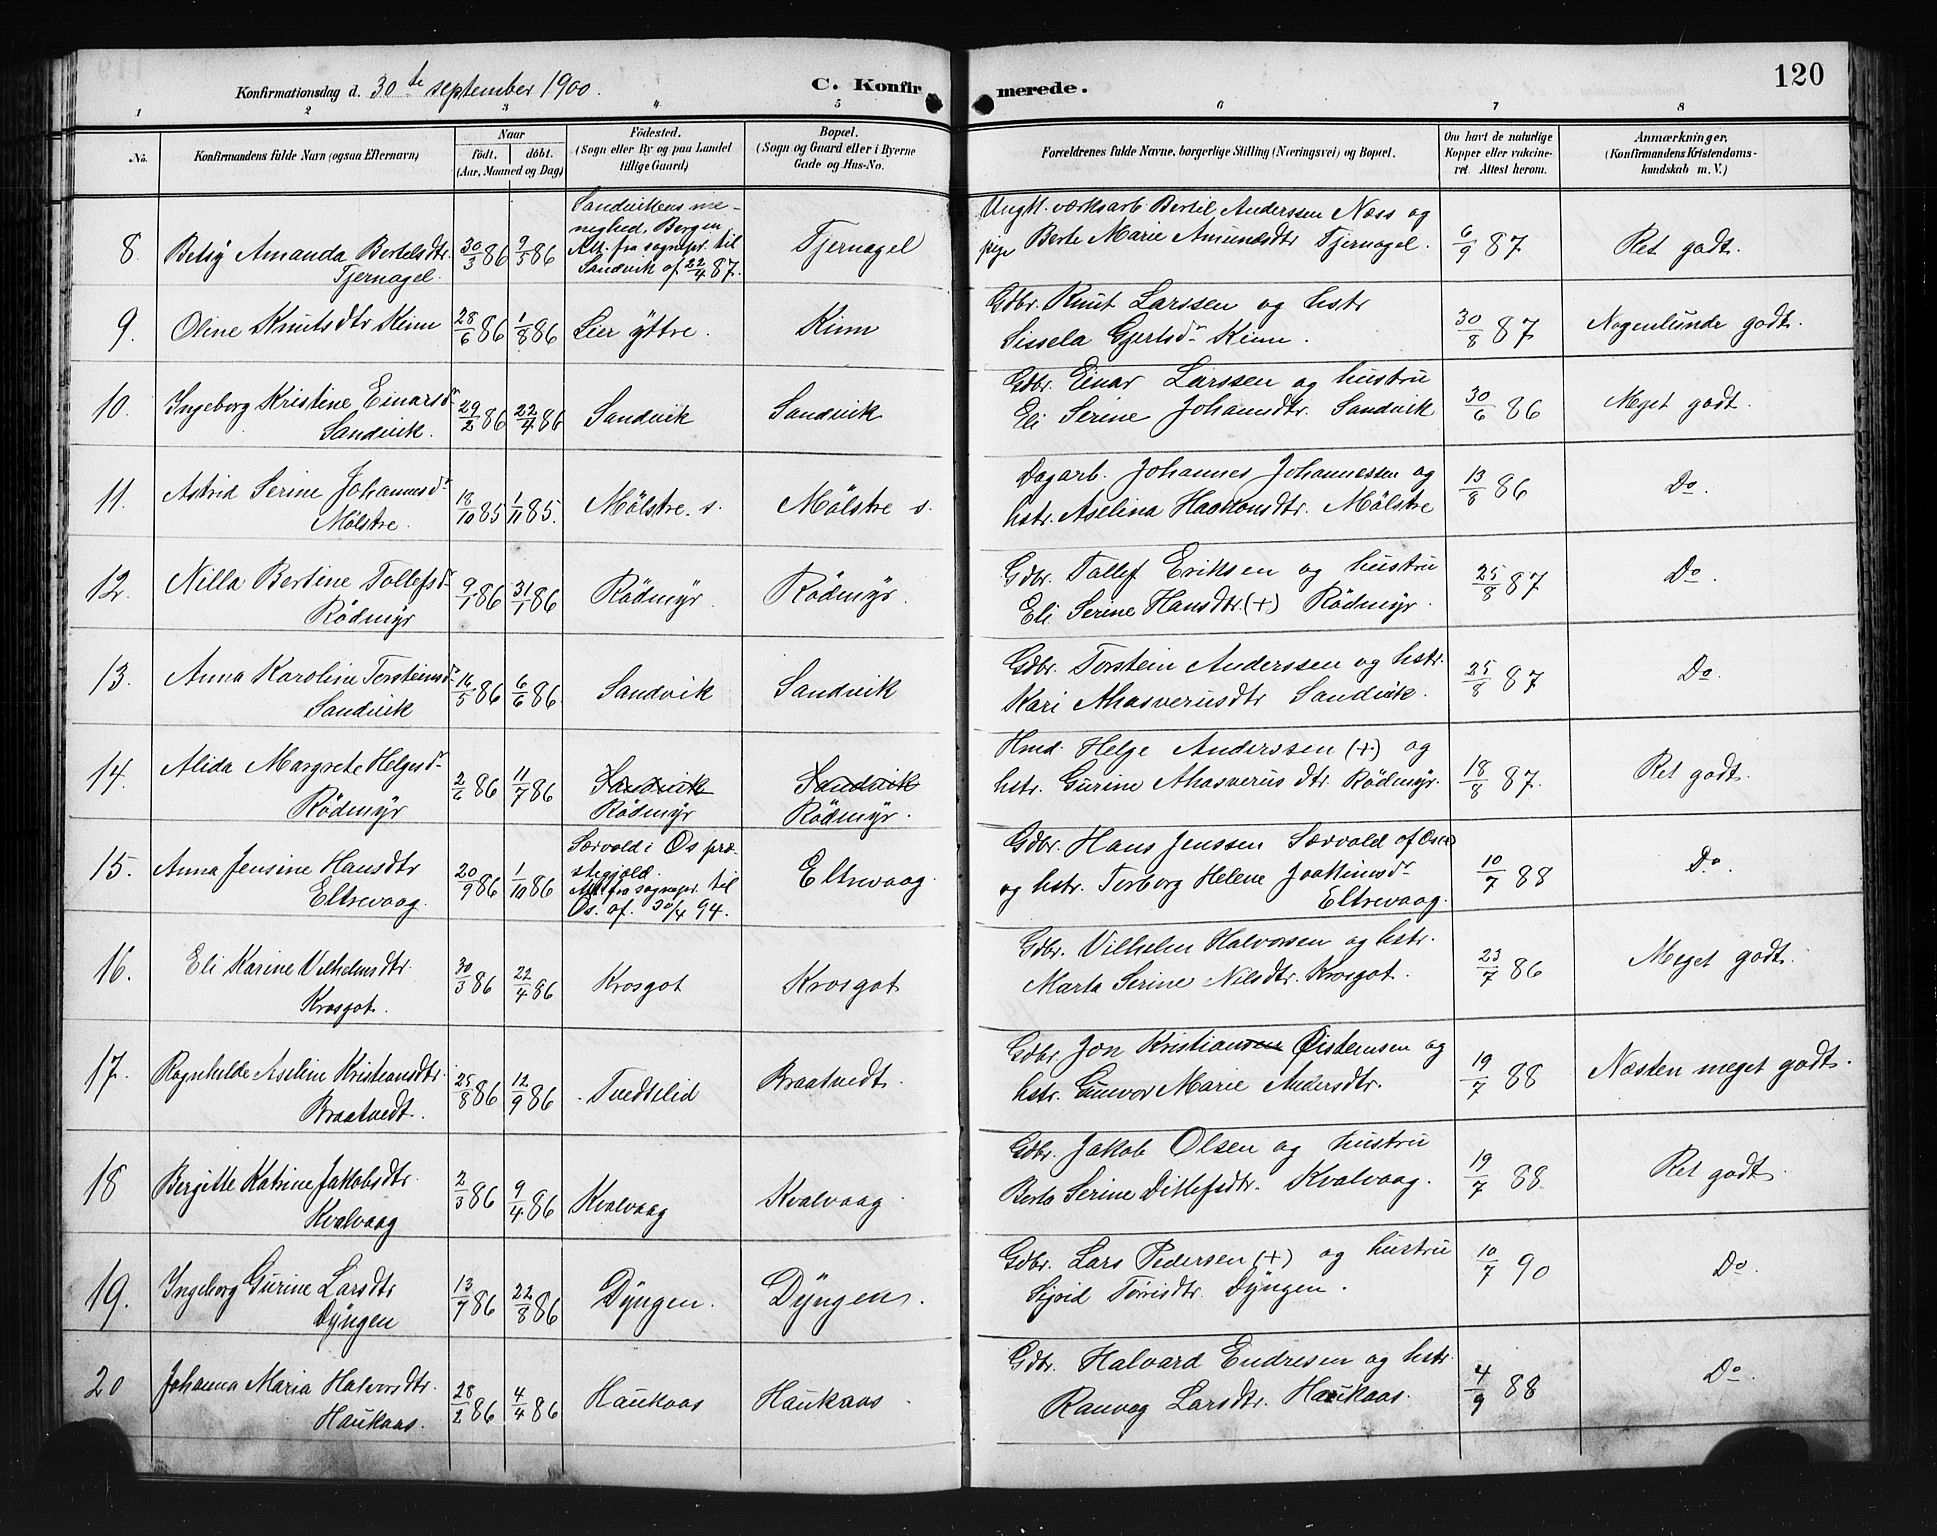 120
Konfirmationsdag d. 30te september 1900.
C. Konfirmerede.
1 2 3 4 5 6 7 8
No.
Konfirmandens fulde Navn (ogsaa Efternavn)
Naar
født. døbt.
(Aar, Maaned og Dag)
Födested.
(Sogn eller By og paa Landet
tillige Gaard)
Bopæl.
(Sogn og Gaard eller i Byerne
Gade og Hus-No.
Forældrenes fulde Navne, borgerlige Stilling (Næringsvei) og Bopæl.
Om havt de naturlige
Kopper eller vakcine-
ret. Attest herom.
Anmærkninger,
(Konfirmandens Kristendoms-
kundskab m. V.)
8. Betsy Amanda Bertelsdtr.
Tjernagel.
30/3 86 9/5 86
Sandvikens me-
nighed, Bergen
Att. fra sognepr. til
Sandvik af 22/4 87.
Tjernagel
Ungk. værksarb Bertil Anderssen Næss og
pige Berte Marie Amundsdtr Tjernagel.
6/9 87
Ret godt.
9. Oline Knutsdtr Kinn
28/6 86 1/8 86
Leer yttre.
Kinn
Gdbr. Knut Larssen og hstr
Sissela Gjertsdr Kinn.
30/8 87
Nogenlunde godt.
10. Ingeborg Kristine Einarsdr
Sandvik.
29/2 86 22/4 86
Sandvik
Sandvik
Gdbr. Einar Larssen og hustru
Eli Serine Johannsdtr. Sandvik
30/6 86
Meget godt.
11. Astrid Serine Johannesdr
Mølstre.
18/10 85 1/11 85.
Mölstre. s.
Mölstre s.
Dagarb. Johannes Johannessen og
hstr. Aselina Haakonsdtr. Mölstre
13/8 86
Do.
12. Nilla Bertine Tollefsdr
Rödmyr
9/1 86 31/1 86
Rödmyr.
Rödmyr.
Gdbr. Tollef Eriksen og hustru
Eli Serine Hansdtr. (+) Rödmyr.
25/8 87
Do.
13. Anna Karoline Torsteinsdr
Sandvik
16/5 86 6/6 86.
Sandvik
Sandvik
Gdbr. Torstein Anderssen og hstr.
Kari Ahasverusdtr Sandvik.
25/8 87
Do.
14. Alida Margrete Helgesdr
Rödmyr
2/6 86 11/7 86
Sandvik
Rödmyr
Sandvik
Rödmyr.
Hmd. Helge Anderssen (+) og
hstr. Gurine Ahasverusdtr Rödmyr.
18/8 87.
Ret godt.
15. Anna Jensine Hansdtr
Eltrevaag.
20/9 86 1/10 86
Særvold i Os præ-
stegjeld.
Att. fra sognepr. til
Os. af. 30/4 94.
Eltrevaag
Gdbr. Hans Jenssen Særvold af Os
og hstr. Torborg Helene Joakimsdr
Eltrevaag.
10/7 88
Do.
16. Eli Karine Vilhelmsdtr.
Krosgot.
30/3 86 22/4 86
Krosgot
Krosgot
Gdbr. Vilhelm Halvorsen og hstr.
Marta Serine Nilsdtr. Krosgot.
23/7 86
Meget godt.
17. Ragnhilde Aseline Kristiansdtr.
Braatvedt.
25/8 86 12/9 86
Tvedtelid
Braatvedt.
Gdbr. Jon Kristiansen Øistensen og
hstr. Gunvor Marie Andersdtr.
19/7 88
Næsten meget godt.
18 Bergitte Katrine Jakobsdtr.
Kvalvaag
2/3 86 9/4 86
Kvalvaag
Kvalvaag.
Gdbr. Jakob Olsen og hustru
Berta Serine Ditlefsdtr. Kvalvaag.
19/7 88.
Ret godt.
19. Ingeborg Gurine Larsdtr
Dyngen
13/7 86 22/8 86
Dyngen.
Dyngen.
Gdbr. Lars Pedersen (+) og hustru
Sigrid Torrisdtr. Dyngen.
10/7 90
Do.
20 Johanna Maria Halvorsdtr.
Haukaas.
28/2 86 4/4 86
Haukaas
Haukaas.
Gdbr. Halvard Endresen og hstr.
Ranvag Larsdtr. Haukaas.
4/9 88
Do.